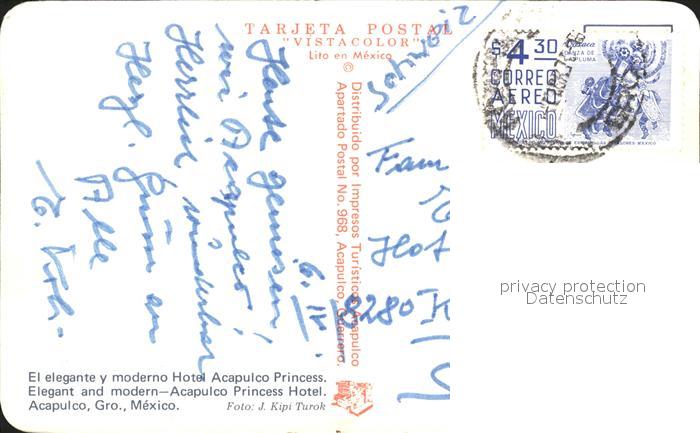 TARJETA POSTAL
"VISTACOLOR"
Lito en México
©
$4.30
Oaxaca
DANZA DE
LA PLUMA
CORREO
AEREO
MEXICO
Distribuido por Impresos Turísticos Acapulco
Apartado Postal No. 968, Acapulco, Guerrero.
6. IV.
Heute geniessen
wir Acapulco!
Herrlich, wunderbar
Herzl. Grüsse an
Alle
Fam
Hot
8280 K
privacy protection
Datenschutz
El elegante y moderno Hotel Acapulco Princess.
Elegant and modern—Acapulco Princess Hotel.
Acapulco, Gro., México.
Foto: J. Kipi Turok